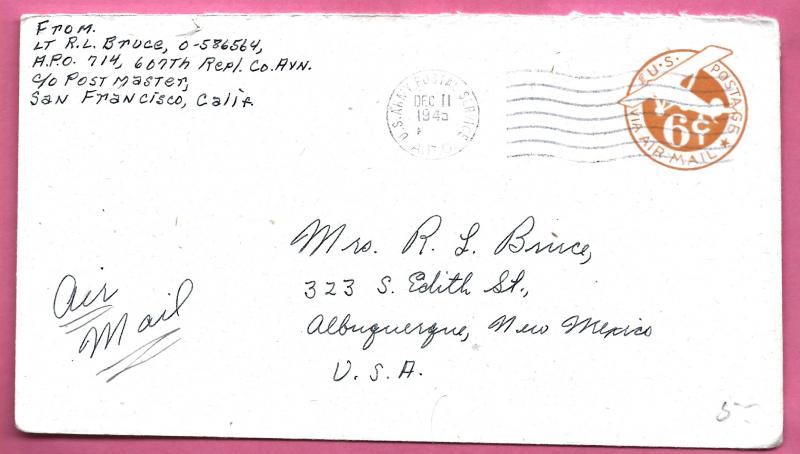 From.
LT R.L. Bruce, O-586564,
A.P.O. 714, 607TH Repl. Co. Avn.
c/o POSTMASTER,
San Francisco, Calif.
U.S. ARMY POSTAL SERVICE
DEC 11
1945
A.P.O.
U.S. POSTAGE
6¢
VIA AIR MAIL
Mrs. R. L. Bruce,
323 S. Edith St.,
Albuquerque, New Mexico
U. S. A.
Air
Mail
5-